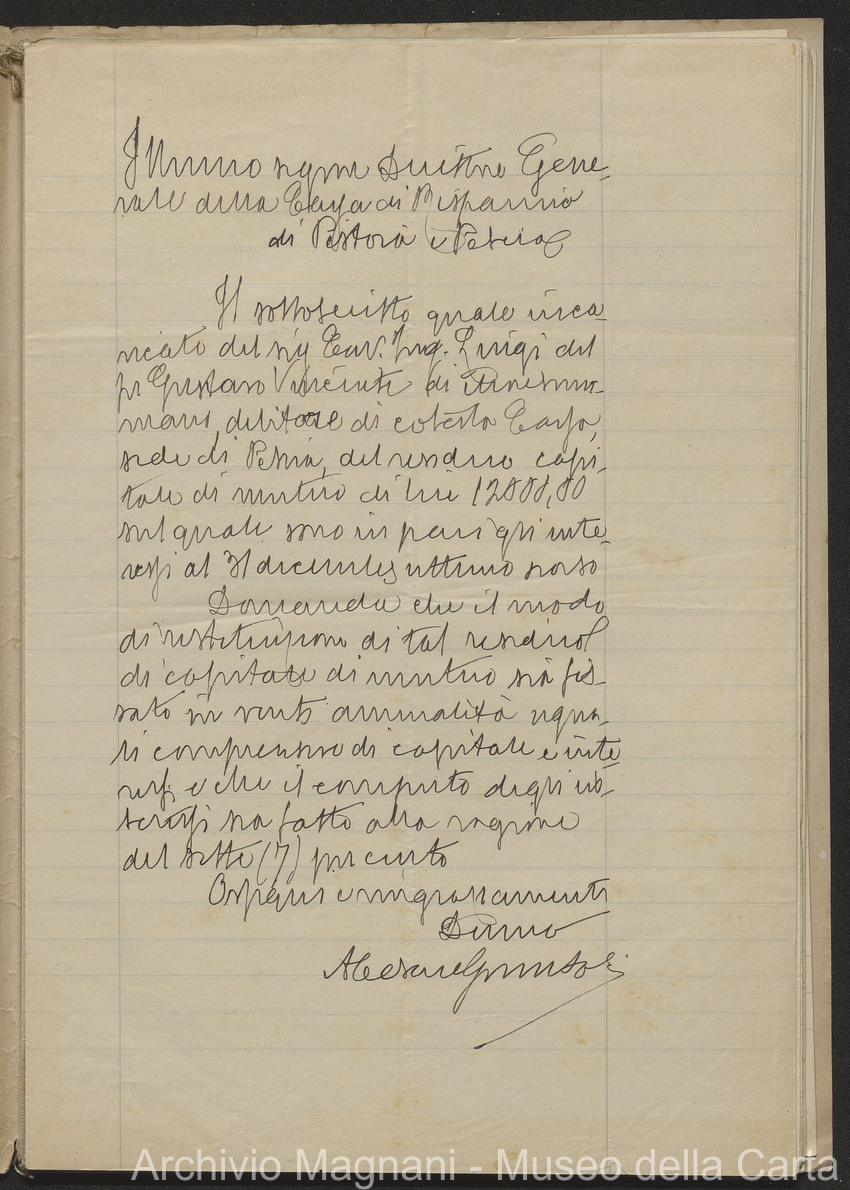 Illmmo signor Direttore Gene-
rale della Cassa di Risparmio
di Pistoia e Pescia
Il sottoscritto quale inca-
ricato del sig Cav. Ing. Luigi del
fu Gustavo Vincenti di
mano, debitore di cotesta Cassa,
sede di Pescia, del residuo capi-
tale di mutuo di lire
sul quale sono in pari gli inte-
ressi al 31 dicembre ultimo scorso
Domanda che il modo
di restituzione di tal residuo
di capitale di mutuo sia fis-
sato in venti annualità ugua-
li comprensive di capitale e inte
ressi e che il computo degli in-
teressi sia fatto alla ragione
del sette (7) per cento
Ossequi e ringraziamenti
Devmo
Archivio Magnani - Museo della Carta